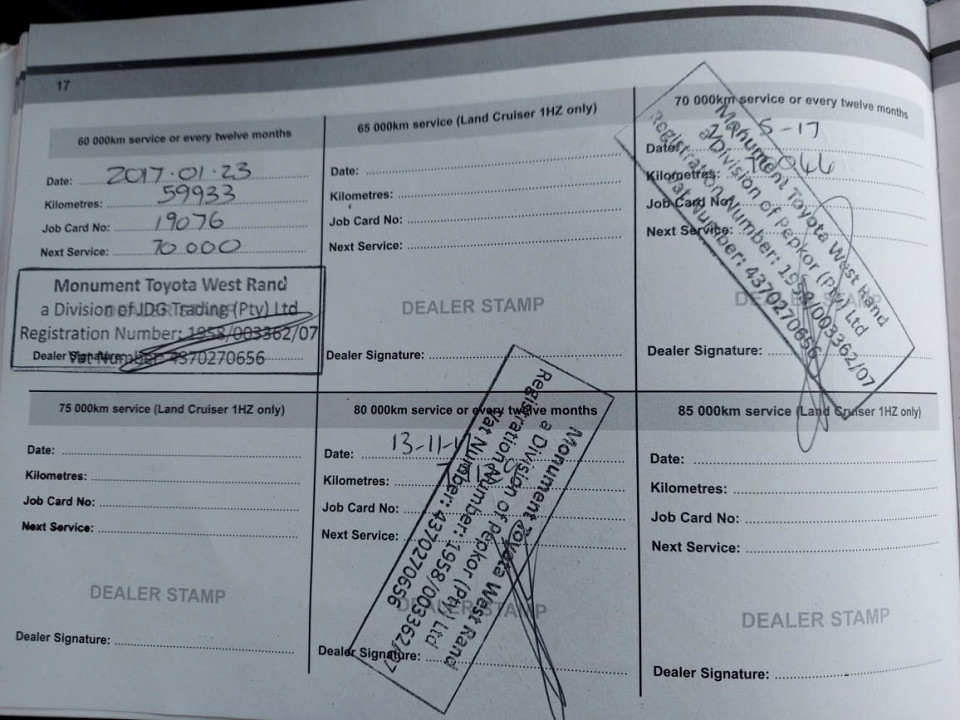 17
60 000km service or every twelve months
Date: 2017.01.23
Kilometres: 59933
Job Card No: 19076
Next Service: 70 000
DEALER STAMP
Monument Toyota West Rand
a Division of JDG Trading (Pty) Ltd
Registration Number: 1958/003362/07
Vat Number: 4370270656
Dealer Signature:
65 000km service (Land Cruiser 1HZ only)
Date:
Kilometres:
Job Card No:
Next Service:
DEALER STAMP
Dealer Signature:
70 000km service or every twelve months
Date: 5-17
Kilometres:
Job Card No:
Next Service:
Monument Toyota West Rand
a Division of Pepkor (Pty) Ltd
Registration Number: 1958/003362/07
Vat Number: 4370270656
Dealer Signature:
75 000km service (Land Cruiser 1HZ only)
Date:
Kilometres:
Job Card No:
Next Service:
DEALER STAMP
Dealer Signature:
80 000km service or every twelve months
Date: 13-11-
Kilometres:
Job Card No:
Next Service:
DEALER STAMP
Monument Toyota West Rand
a Division of Pepkor (Pty) Ltd
Registration Number: 1958/003362/07
Vat Number: 4370270656
Dealer Signature:
85 000km service (Land Cruiser 1HZ only)
Date:
Kilometres:
Job Card No:
Next Service:
DEALER STAMP
Dealer Signature: